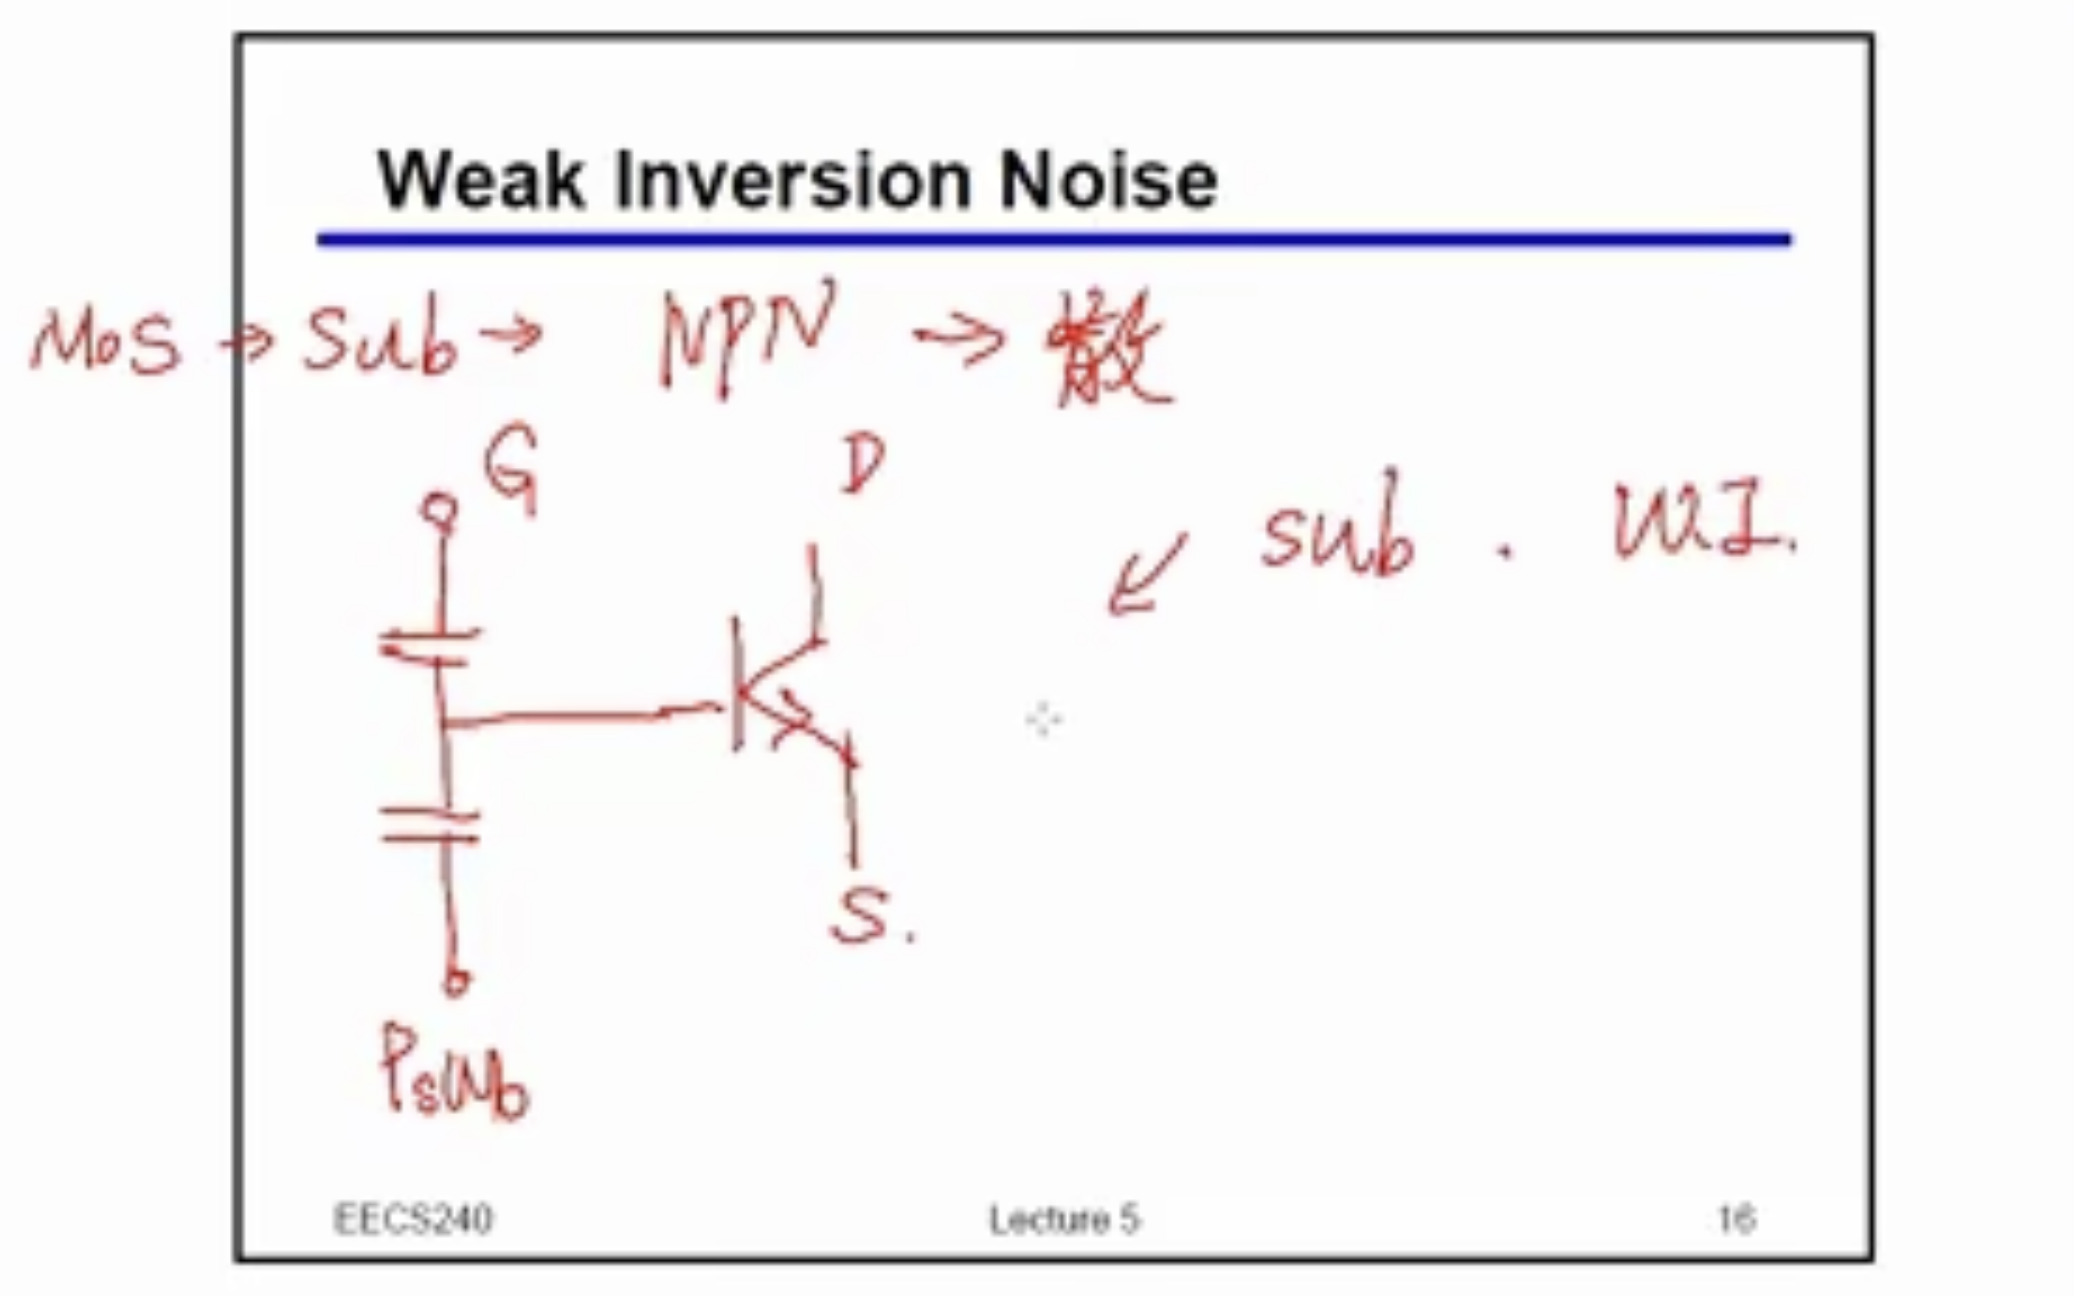 Weak Inversion Noise
MOS → Sub → NPN → 散
G
D
sub . WI.
S.
Psub
EECS240 Lecture 5 16